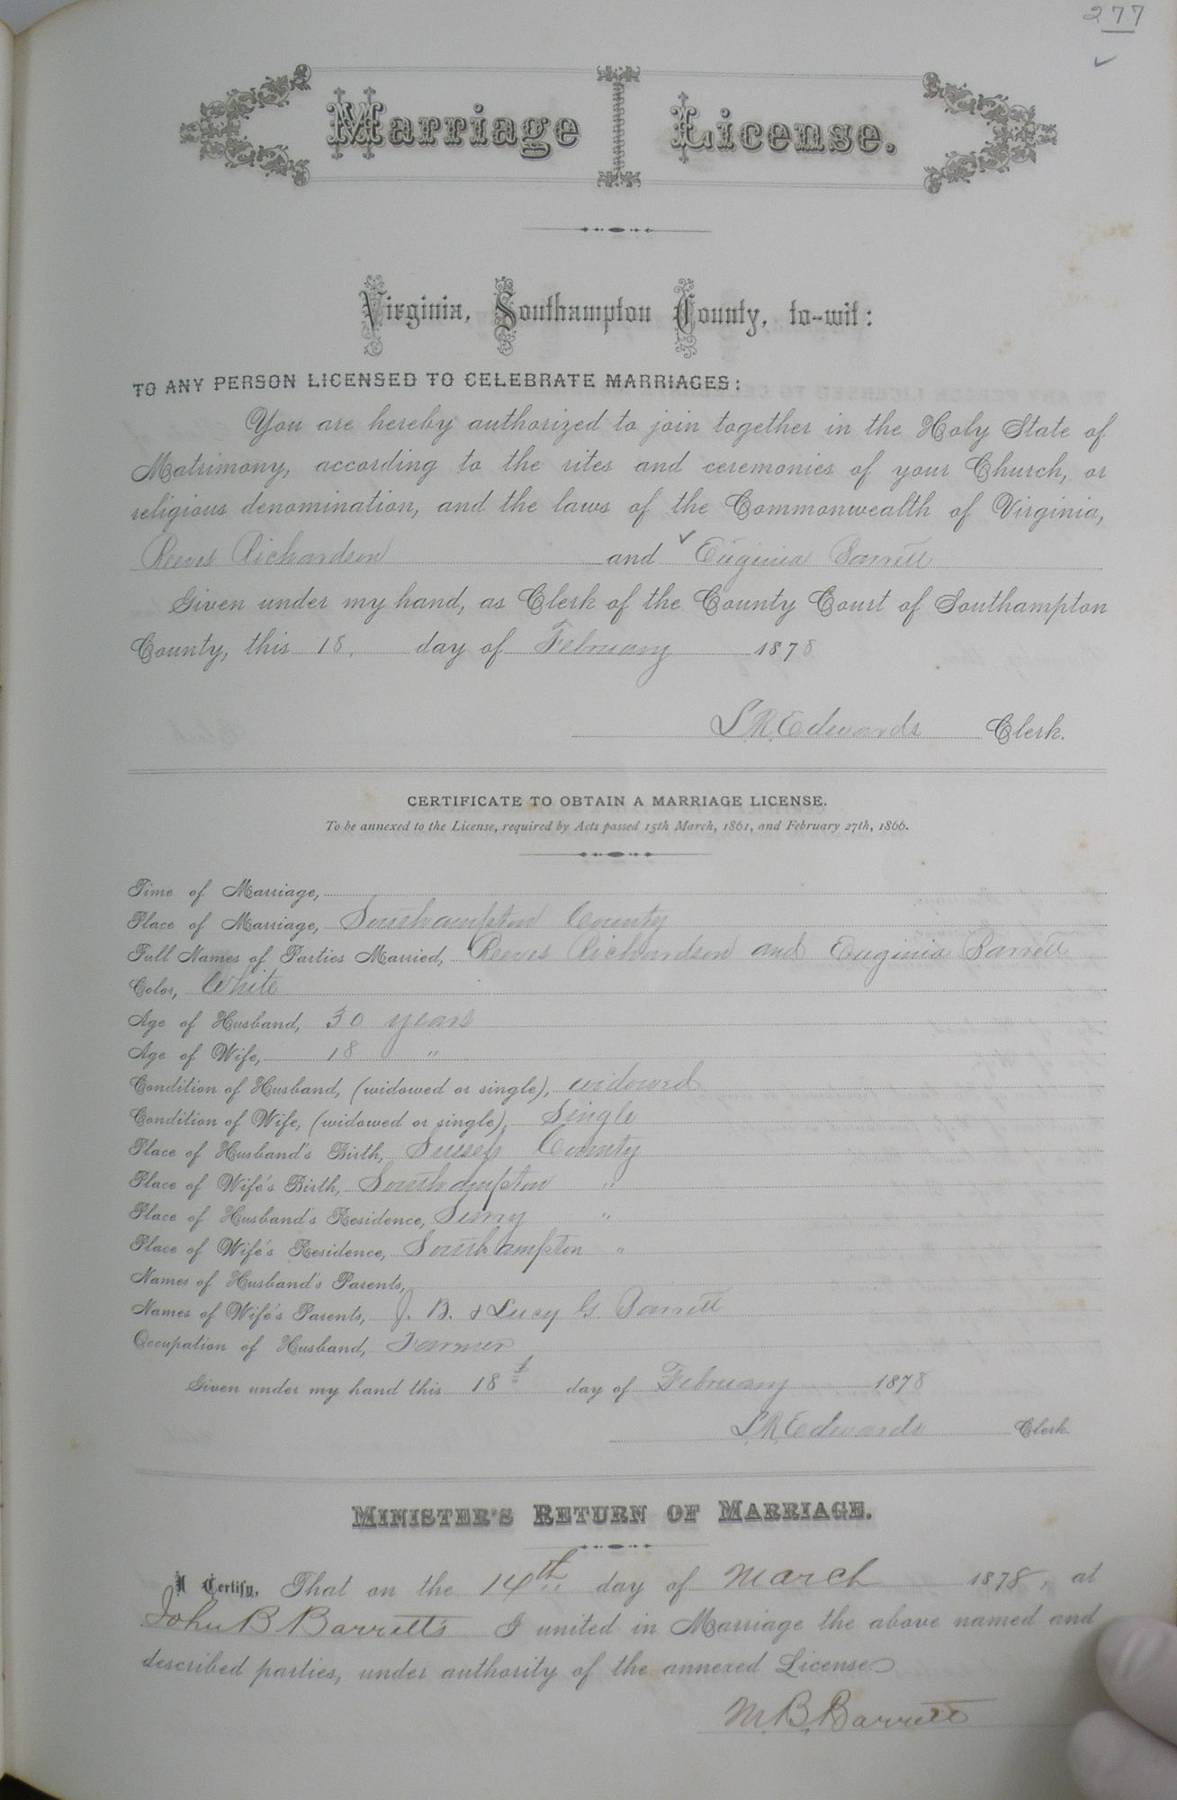 277
Marriage License.
Virginia, Southampton County, to-wit:
TO ANY PERSON LICENSED TO CELEBRATE MARRIAGES:
You are hereby authorized to join together in the Holy State of
Matrimony, according to the rites and ceremonies of your Church, or
religious denomination, and the laws of the Commonwealth of Virginia,
Reeves Richardson and Euginia Barrett
Given under my hand, as Clerk of the County Court of Southampton
County, this 18. day of February 1878
L. R. Edwards Clerk.
CERTIFICATE TO OBTAIN A MARRIAGE LICENSE.
To be annexed to the License, required by Acts passed 15th March, 1861, and February 27th, 1866.
Time of Marriage,
Place of Marriage, Southampton County
Full Names of Parties Married, Reeves Richardson and Euginia Barrett
Color, White
Age of Husband, 30 years
Age of Wife, 18 "
Condition of Husband, (widowed or single), widowed
Condition of Wife, (widowed or single), Single
Place of Husband's Birth, Sussex County
Place of Wife's Birth, Southampton "
Place of Husband's Residence, Surry "
Place of Wife's Residence, Southampton "
Names of Husband's Parents,
Names of Wife's Parents, J. B. & Lucy G. Barrett
Occupation of Husband, Farmer
Given under my hand this 18th day of February 1878
L. R. Edwards Clerk.
MINISTER'S RETURN OF MARRIAGE.
I Certify, That on the 14th day of March 1878, at
John B Barretts I united in Marriage the above named and
described parties, under authority of the annexed License
M. B. Barrett